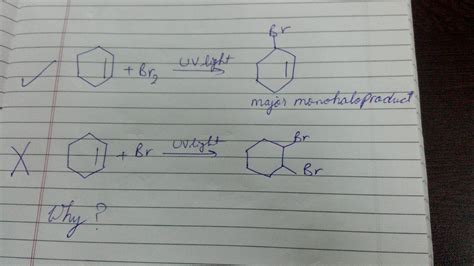 Br
+ Br₂ UV light
major monohaloproduct
Br
+ Br UV light
Br
Why?